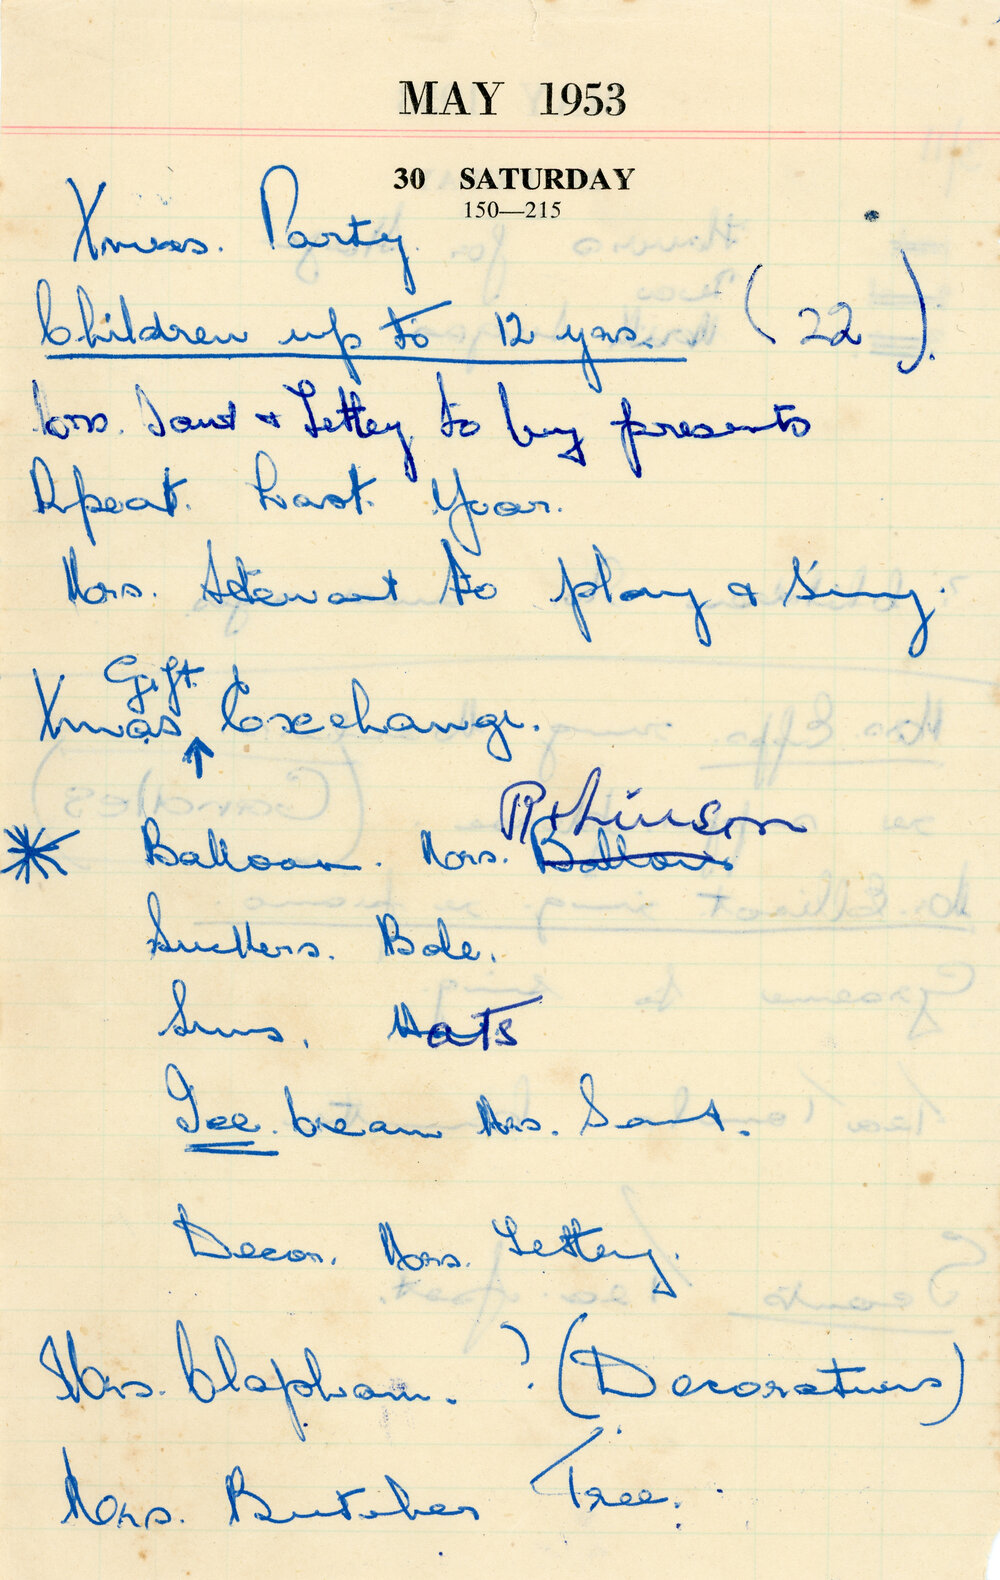 MAY 1953
30 SATURDAY
150—215
Xmas. Party.
Children up to 12 yrs. (22).
Mrs. & Lettey to buy presents
Repeat. Last. Year.
Mrs. Stewart to play & Sing.
Xmas Gift Exchange.
Robinson
Balloons. Mrs.
Suckers. Bole.
Hats
Ice. Cream Mrs.
Decor. Mrs. Lettey.
Mrs. Clapham. ? (Decorations)
Mrs. Butcher Tree.